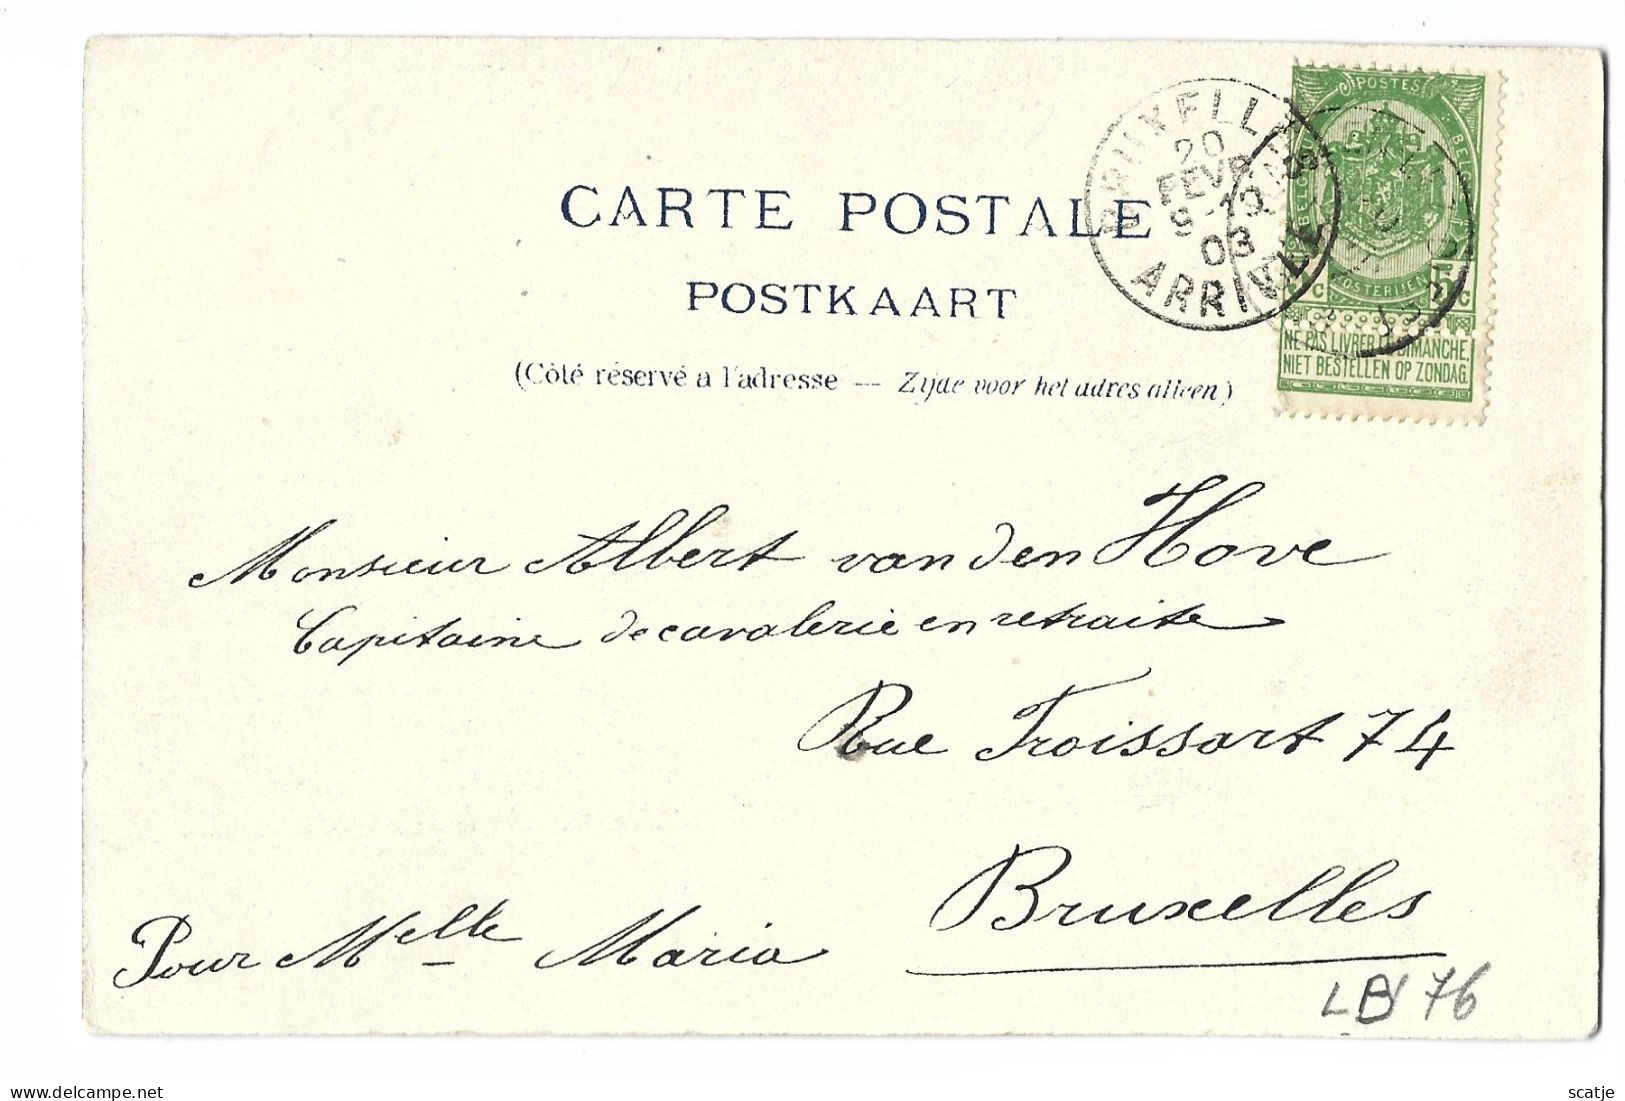 CARTE POSTALE
POSTKAART
(Côté réservé a l'adresse — Zijde voor het adres alleen)
BRUXELLES
20
FEVR
9-10
03
ARRIVÉE
POSTES
BELGIQUE
POSTERIJEN
5 C
NE PAS LIVRER LE DIMANCHE.
NIET BESTELLEN OP ZONDAG.
Monsieur Albert van den Hove
Capitaine de cavalerie en retraite
Rue Froissart 74
Bruxelles
Pour Melle Maria
LB 76
scatje